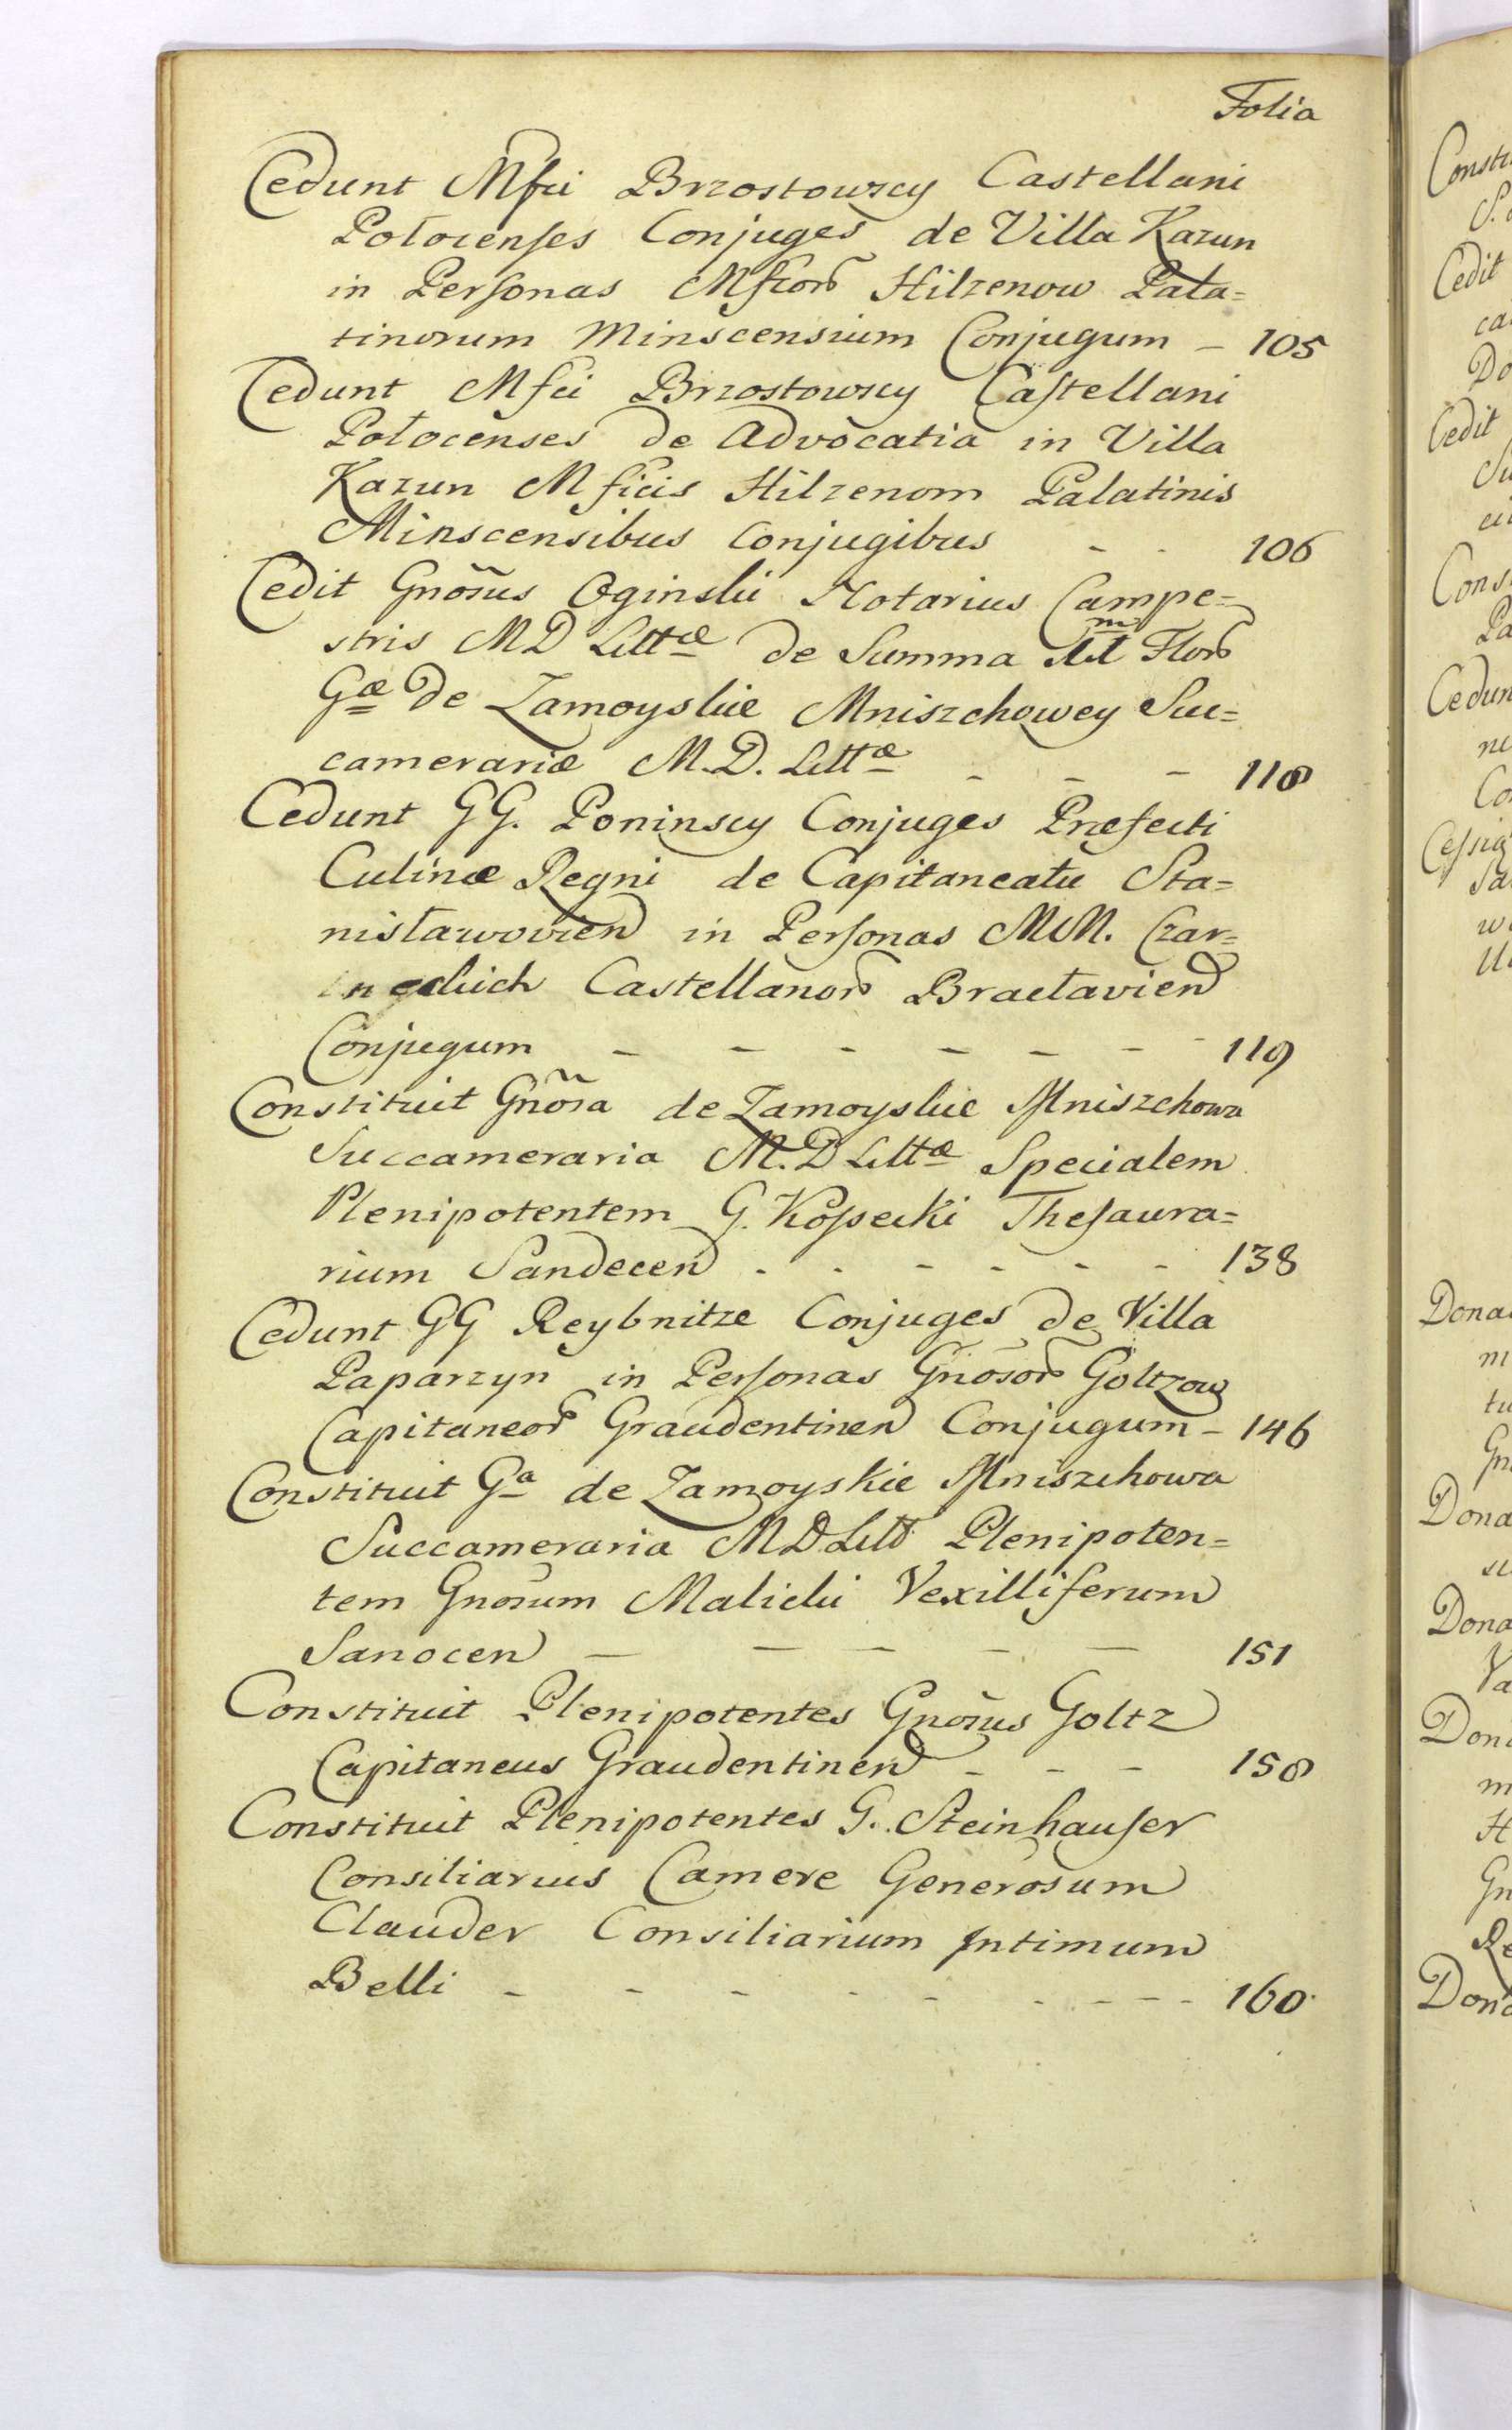 Folia
Cedunt Mfci Brzostowscy Castellani
Połocenses Conjuges de Villa Kazun
in Personas Mficor̃ Hilzenow Pala=
tinorum Minscensium Conjugum – 105
Cedunt Mfci Brzostowscy Castellani
Połocenses de Advocatia in Villa
Kazun Mficis Hilzenom Palatinis
Minscensibus Conjugibus - - 106
Cedit Gnõsus Oginski Notarius Campe=
stris MD Littæ de Summa Flor̃
Gæ de Zamoyskie Mniszchowey Suc=
camerariæ M.D. Littæ - - - 118
Cedunt GG. Poninscy Conjuges Præfecti
Culinæ Regni de Capitaneatu Sta=
nisławovien in Personas MM. Czar=
neckich Castellanor̃ Braclavien
Conjugum - - - - - - 119
Constituit Gnõsa de Zamoyskie Mniszchowa
Succameraria M.D Littæ Specialem
Plenipotentem G. Kossecki Thesaura=
rium Sandecen - - - - - - 138
Cedunt GG Reybnitze Conjuges de Villa
Paparzyn in Personas Gnõsor̃ Goltzow
Capitaneor̃ Graudentinen Conjugum - 146
Constituit Ga de Zamoyskie Mniszchowa
Succameraria MD Litt Plenipoten=
tem Gnõsum Malicki Vexilliferum
Sanocen - - - - - 151
Constituit Plenipotentes Gnõsus Goltz
Capitaneus Graudentinen - - - 158
Constituit Plenipotentes G. Steinhauser
Consiliarius Camere Generosum
Clauder Consiliarium Intimum
Belli - - - - - - - - - 160
Constit
Cedit
ca
Do
Cedit
Su
Cons
Pa
Cedun
ne
Co
Cessio
Sa
Dona
m
tu
Gn
Dona
Dona
Va
Don
m
H
Gn
Re
Dona